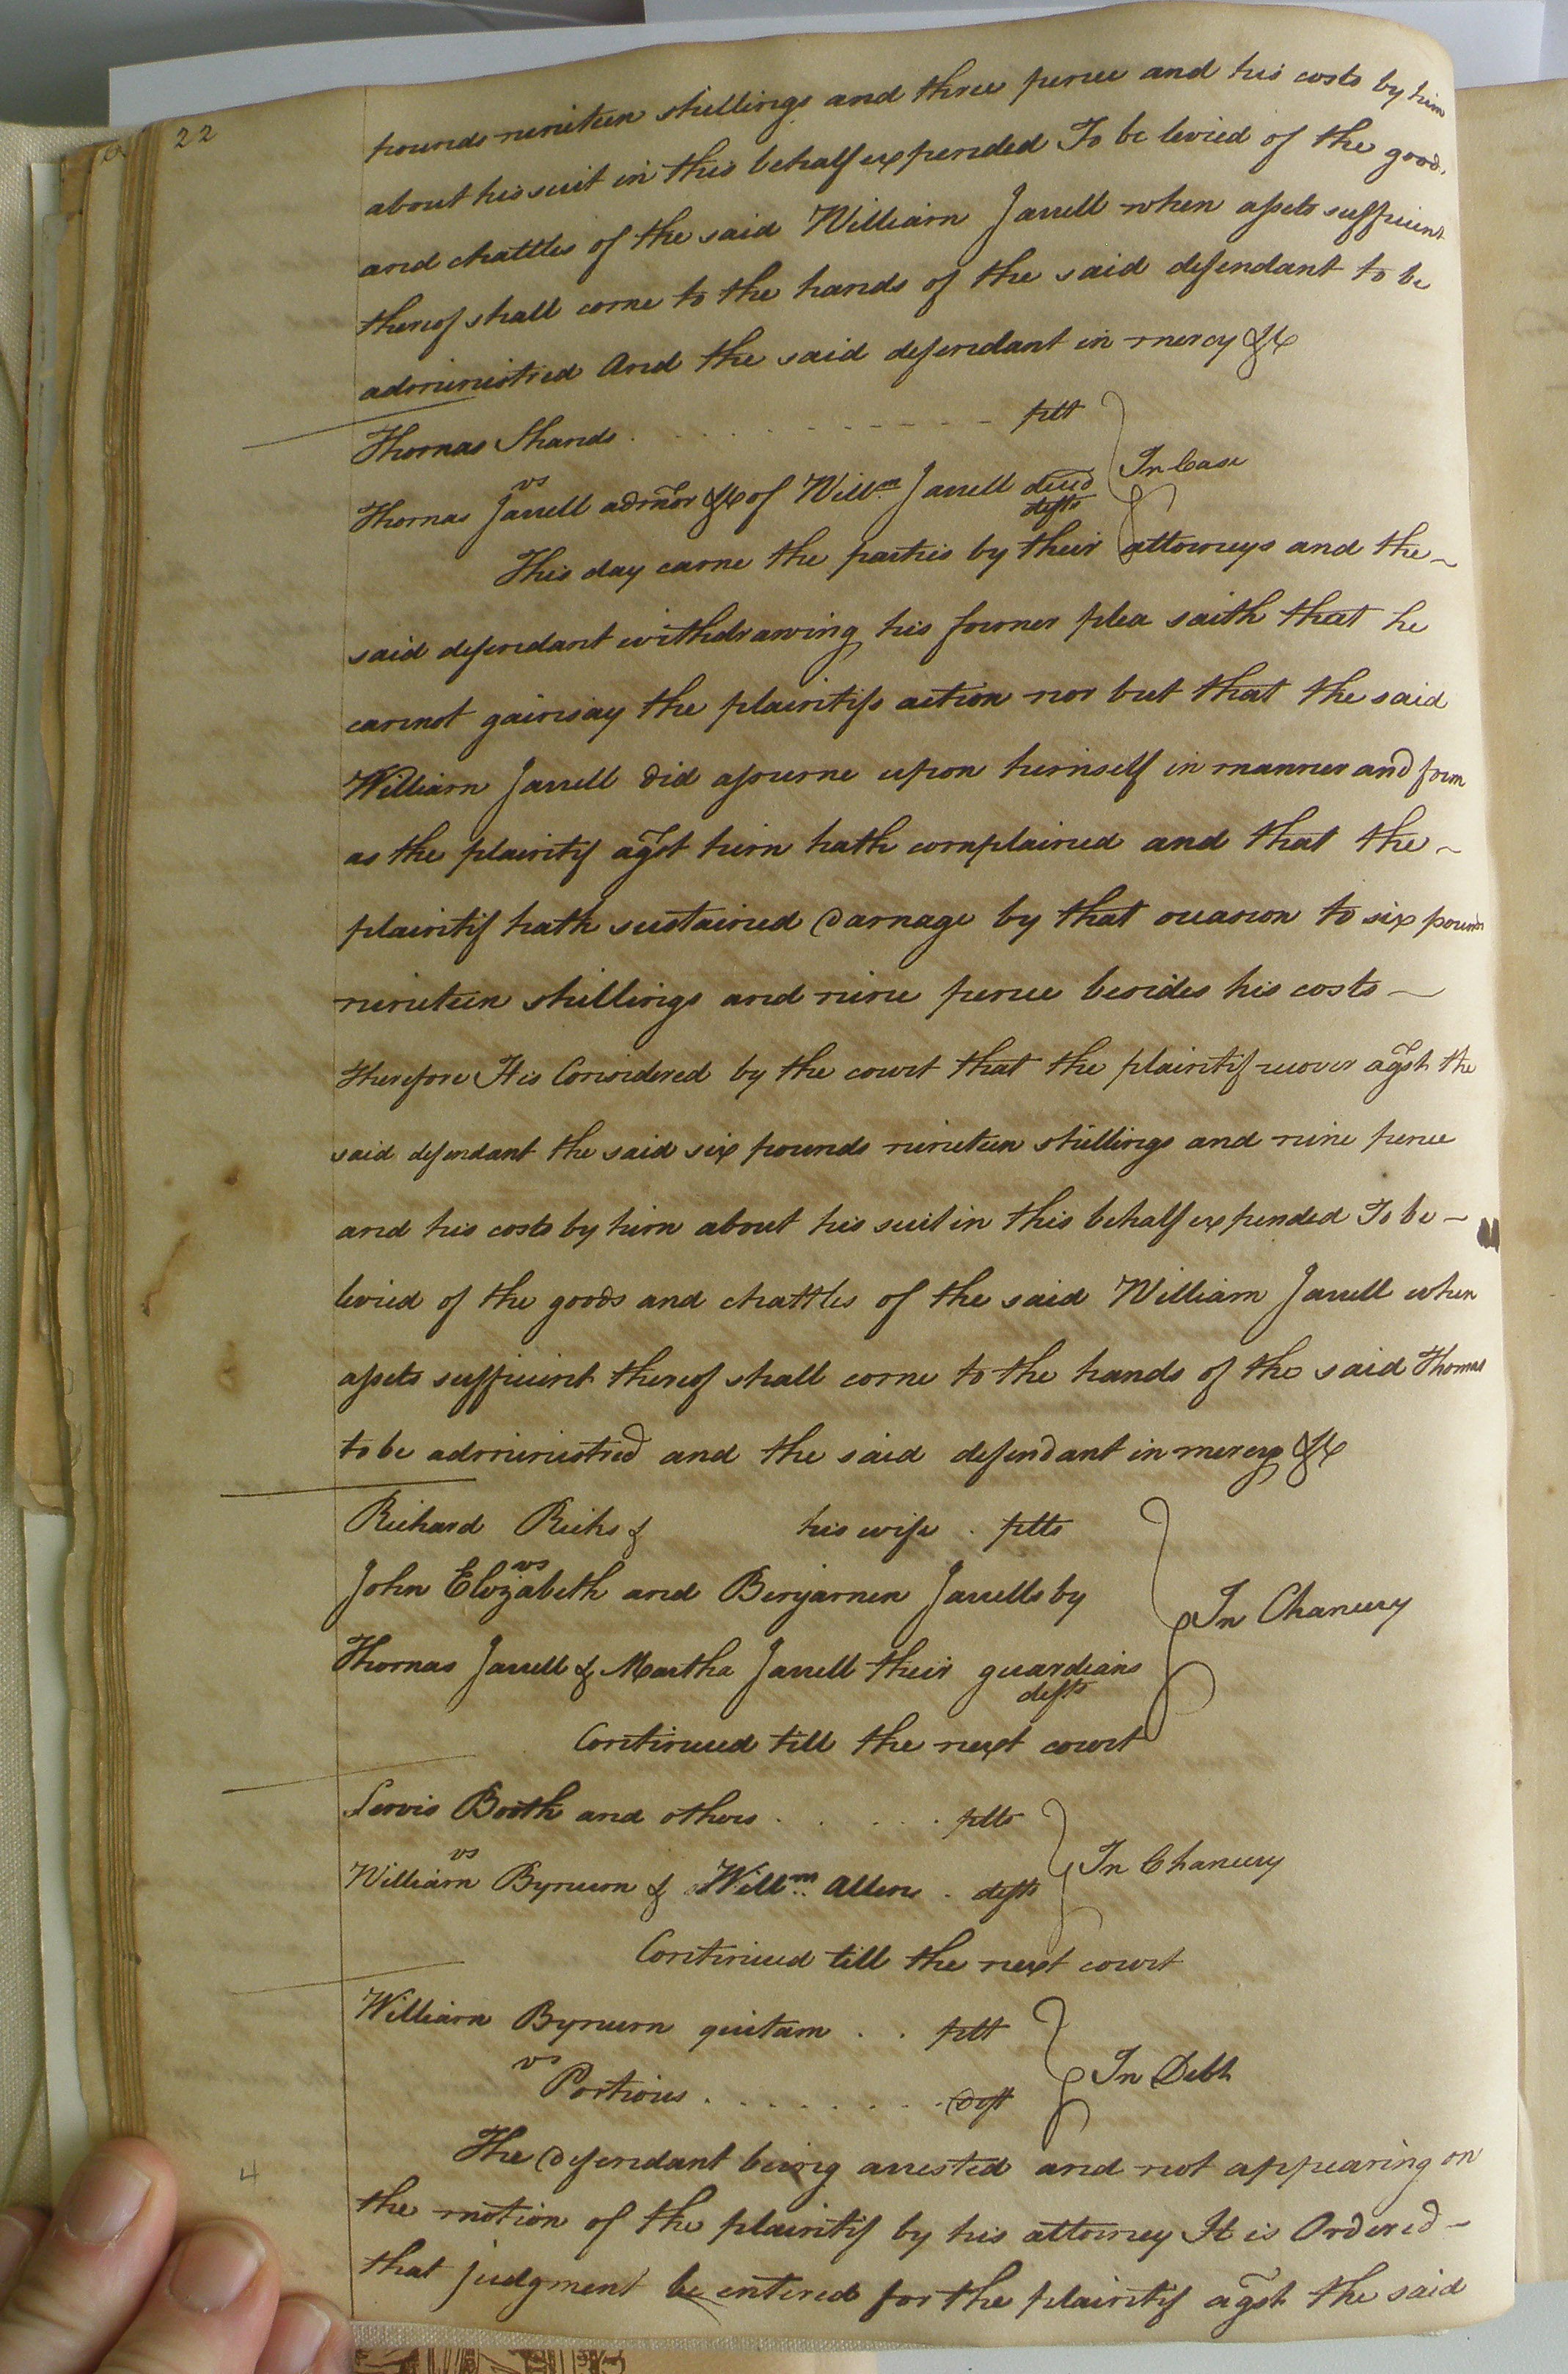 22
pounds nineteen shillings and three pence and his costs by him
about his suit in this behalf expended To be levied of the goods
and chattles of the said William Jarrell when assets sufficient
thereof shall come to the hands of the said defendant to be
administred And the said defendant in mercy &c
Thomas Shands . . . . . . . . . plt
vs
In Case
Thomas Jarrell admor &c of Willm Jarrell decd
defts
This day came the parties by their attorneys and the
said defendant withdrawing his former plea saith that he
cannot gainsay the plaintifs action nor but that the said
William Jarrell did assume upon himself in manner and form
as the plaintif agst him hath complained and that the
plaintif hath sustained damage by that occasion to six pounds
nineteen shillings and nine pence besides his costs
Therefore It is Considered by the court that the plaintif recover agst the
said defendant the said six pounds nineteen shillings and nine pence
and his costs by him about his suit in this behalf expended To be
levied of the goods and chattles of the said William Jarrell when
assets sufficient thereof shall come to the hands of the said Thomas
to be administred and the said defendant in mercy &c
Richard Ricks & his wife . plts
vs
John Elizabeth and Benjamin Jarrells by
In Chancery
Thomas Jarrell & Martha Jarrell their guardians
defts
Continued till the next court
Lewis Booth and others . . . . . plts
vs
In Chancery
William Bynum & Willm Allen . defts
Continued till the next court
William Bynum quitam . . plt
vs
In Debt
Portious . . . . . . . . Deft
The defendant being arrested and not appearing on
the motion of the plaintif by his attorney It is Ordered
4
that judgment be entered for the plaintif agst the said